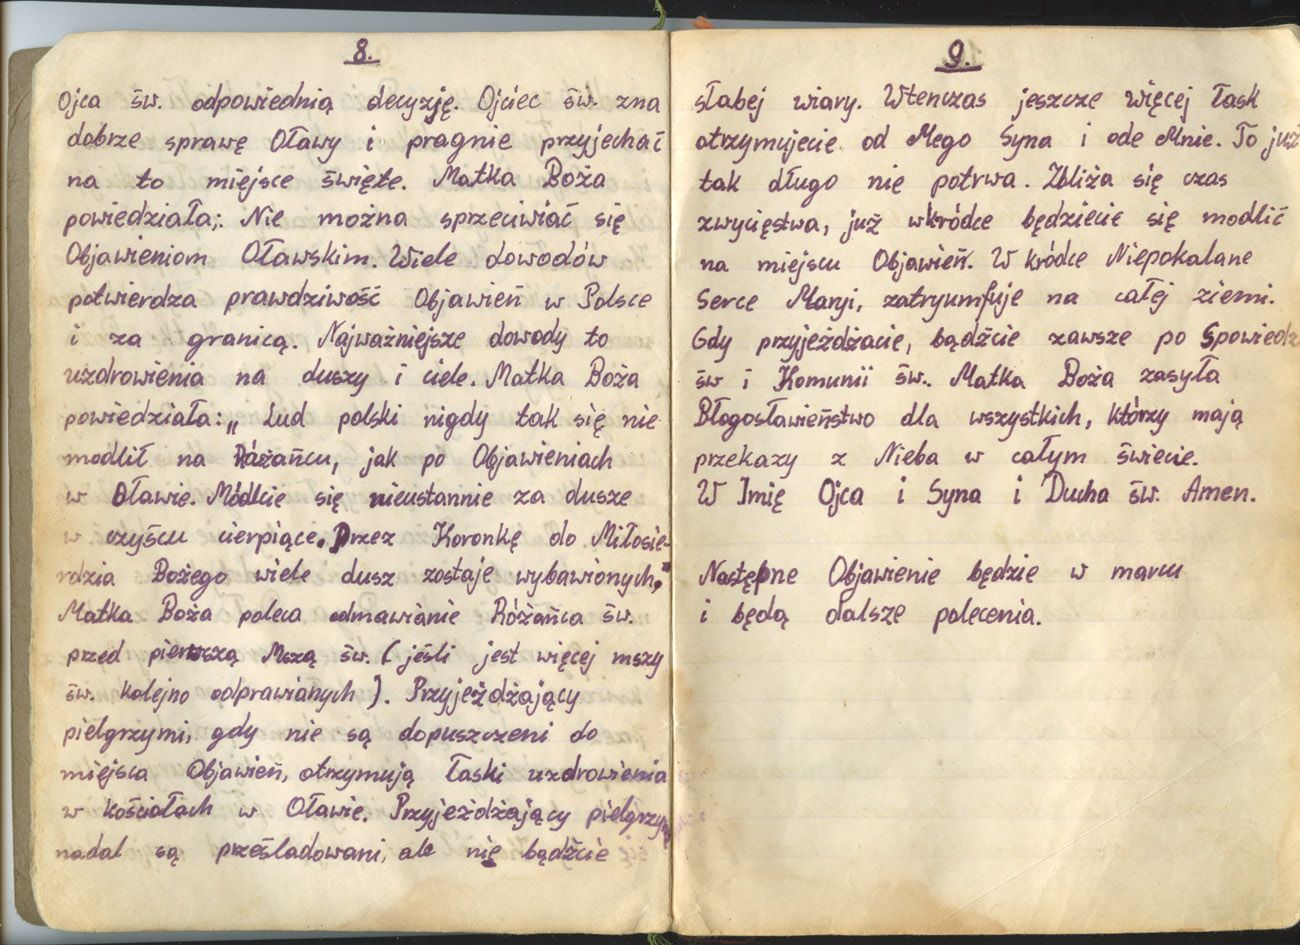 8.
Ojca św. odpowiednią decyzję. Ojciec św. zna
dobrze sprawę Oławy i pragnie przyjechać
na to miejsce święte. Matka Boża
powiedziała;. Nie można sprzeciwiać się
Objawieniom Oławskim. Wiele dowodów
potwierdza prawdziwość Objawień w Polsce
i za granicą. Najważniejsze dowody to
uzdrowienia na duszy i ciele. Matka Boża
powiedziała:„ Lud polski nigdy tak się nie
modlił na Różańcu, jak po Objawieniach
w Oławie. Módlcie się nieustannie za dusze
w czyścu cierpiące. Przez Koronkę do Miłosie-
rdzia Bożego wiele dusz zostaje wybawionych."
Matka Boża poleca odmawianie Różańca św.
przed pierwszą Mszą św. (jeśli jest więcej mszy
św. kolejno odprawianych). Przyjeżdżający
pielgrzymi, gdy nie są dopuszczeni do
miejsca Objawień, otrzymują łaski uzdrowienia
w kościołach w Oławie. Przyjeżdżający pielgrzymi
nadal są prześladowani, ale nie bądźcie
9.
słabej wiary. Wtenczas jeszcze więcej łask
otrzymujecie od Mego Syna i ode Mnie. To już
tak długo nie potrwa. Zbliża się czas
zwycięstwa, już wkródce będziecie się modlić
na miejscu Objawień. W kródce Niepokalane
Serce Maryi, zatryumfuje na całej ziemi.
Gdy przyjeżdżacie, bądźcie zawsze po Spowiedzi
św i Komunii św.. Matka Boża zasyła
Błogosławieństwo dla wszystkich, którzy mają
przekazy z Nieba w całym świecie.
W Imię Ojca i Syna i Ducha św. Amen.
Następne Objawienie będzie w marcu
i będą dalsze polecenia.